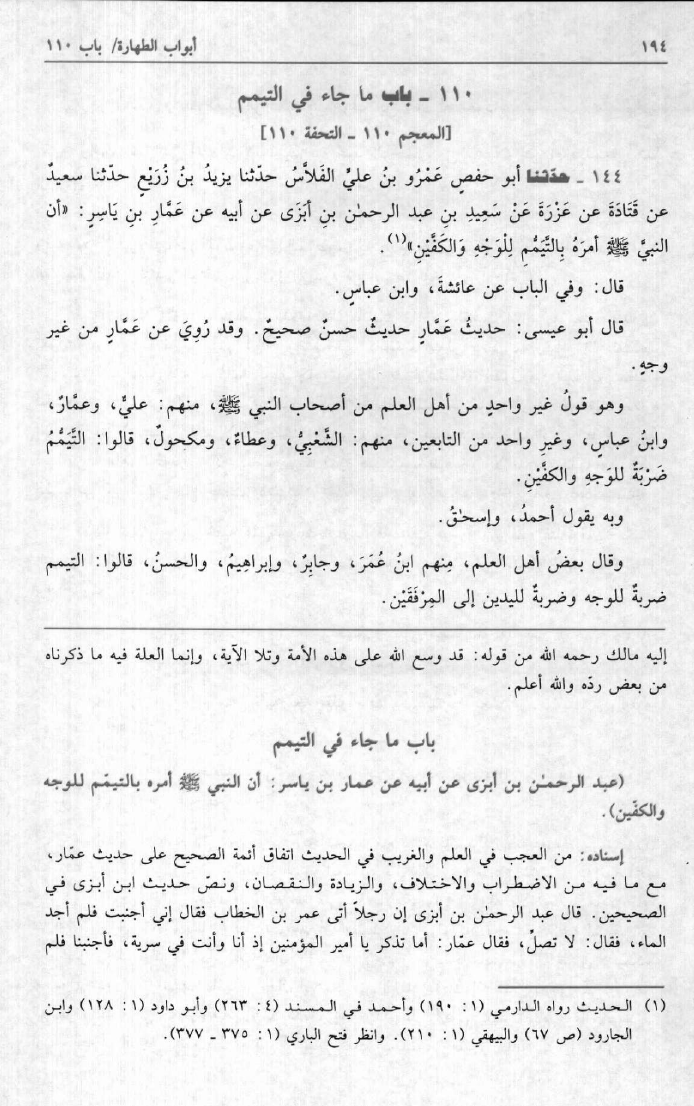 ١٩٤
أبواب الطهارة/ باب ١١٠
١١٠ ـ باب ما جاء في التيمم
[المعجم ١١٠ ـ التحفة ١١٠]
١٤٤ ـ حدّثنا أبو حفصٍ عَمْرُو بنُ عليٍّ الفَلاَّسُ حدّثنا يزيدُ بنُ زُرَيْعٍ حدّثنا سعيدٌ
عن قَتَادَةَ عن عَزْرَةَ عَنْ سَعِيدِ بنِ عبد الرحمٰن بنِ أَبْزَى عن أبيه عن عَمَّارِ بنِ يَاسِرٍ: «أن
النبيَّ ﷺ أمرَهُ بِالتَّيَمُّمِ لِلْوَجْهِ وَالكَفَّيْنِ»(١).
قال: وفي الباب عن عائشةَ، وابن عباسٍ.
قال أبو عيسى: حديثُ عَمَّارٍ حديثٌ حسنٌ صحيحٌ. وقد رُوِيَ عن عَمَّارٍ من غير
وجهٍ.
وهو قولُ غير واحدٍ من أهل العلم من أصحاب النبي ﷺ، منهم: عليٌّ، وعمَّارٌ،
وابنُ عباسٍ، وغيرِ واحد من التابعين، منهم: الشَّعْبِيُّ، وعطاءٌ، ومكحولٌ، قالوا: التَّيَمُّمُ
ضَرْبَةٌ للوَجهِ والكفَّيْنِ.
وبه يقول أحمدُ، وإسحٰقُ.
وقال بعضُ أهل العلم، مِنهم ابنُ عُمَرَ، وجابِرٌ، وإبراهِيمُ، والحسنُ، قالوا: التيمم
ضربةٌ للوجه وضربةٌ لليدين إلى المِرْفَقَيْن.
إليه مالك رحمه الله من قوله: قد وسع الله على هذه الأمة وتلا الآية، وإنما العلة فيه ما ذكرناه
من بعض ردّه والله أعلم.
باب ما جاء في التيمم
(عبد الرحمٰن بن أبزى عن أبيه عن عمار بن ياسر: أن النبي ﷺ أمره بالتيمّم للوجه
والكفّين).
إسناده: من العجب في العلم والغريب في الحديث اتفاق أئمة الصحيح على حديث عمّار،
مع ما فيه من الاضطراب والاختلاف، والزيادة والنقصان، ونصّ حديث ابن أبزى في
الصحيحين. قال عبد الرحمٰن بن أبزى إن رجلاً أتى عمر بن الخطاب فقال إني أجنبت فلم أجد
الماء، فقال: لا تصلِّ، فقال عمّار: أما تذكر يا أمير المؤمنين إذ أنا وأنت في سرية، فأجنبنا فلم
(١) الحديث رواه الدارمي (١: ١٩٠) وأحمد في المسند (٤: ٢٦٣) وأبو داود (١: ١٢٨) وابن
الجارود (ص ٦٧) والبيهقي (١: ٢١٠). وانظر فتح الباري (١: ٣٧٥ ـ ٣٧٧).